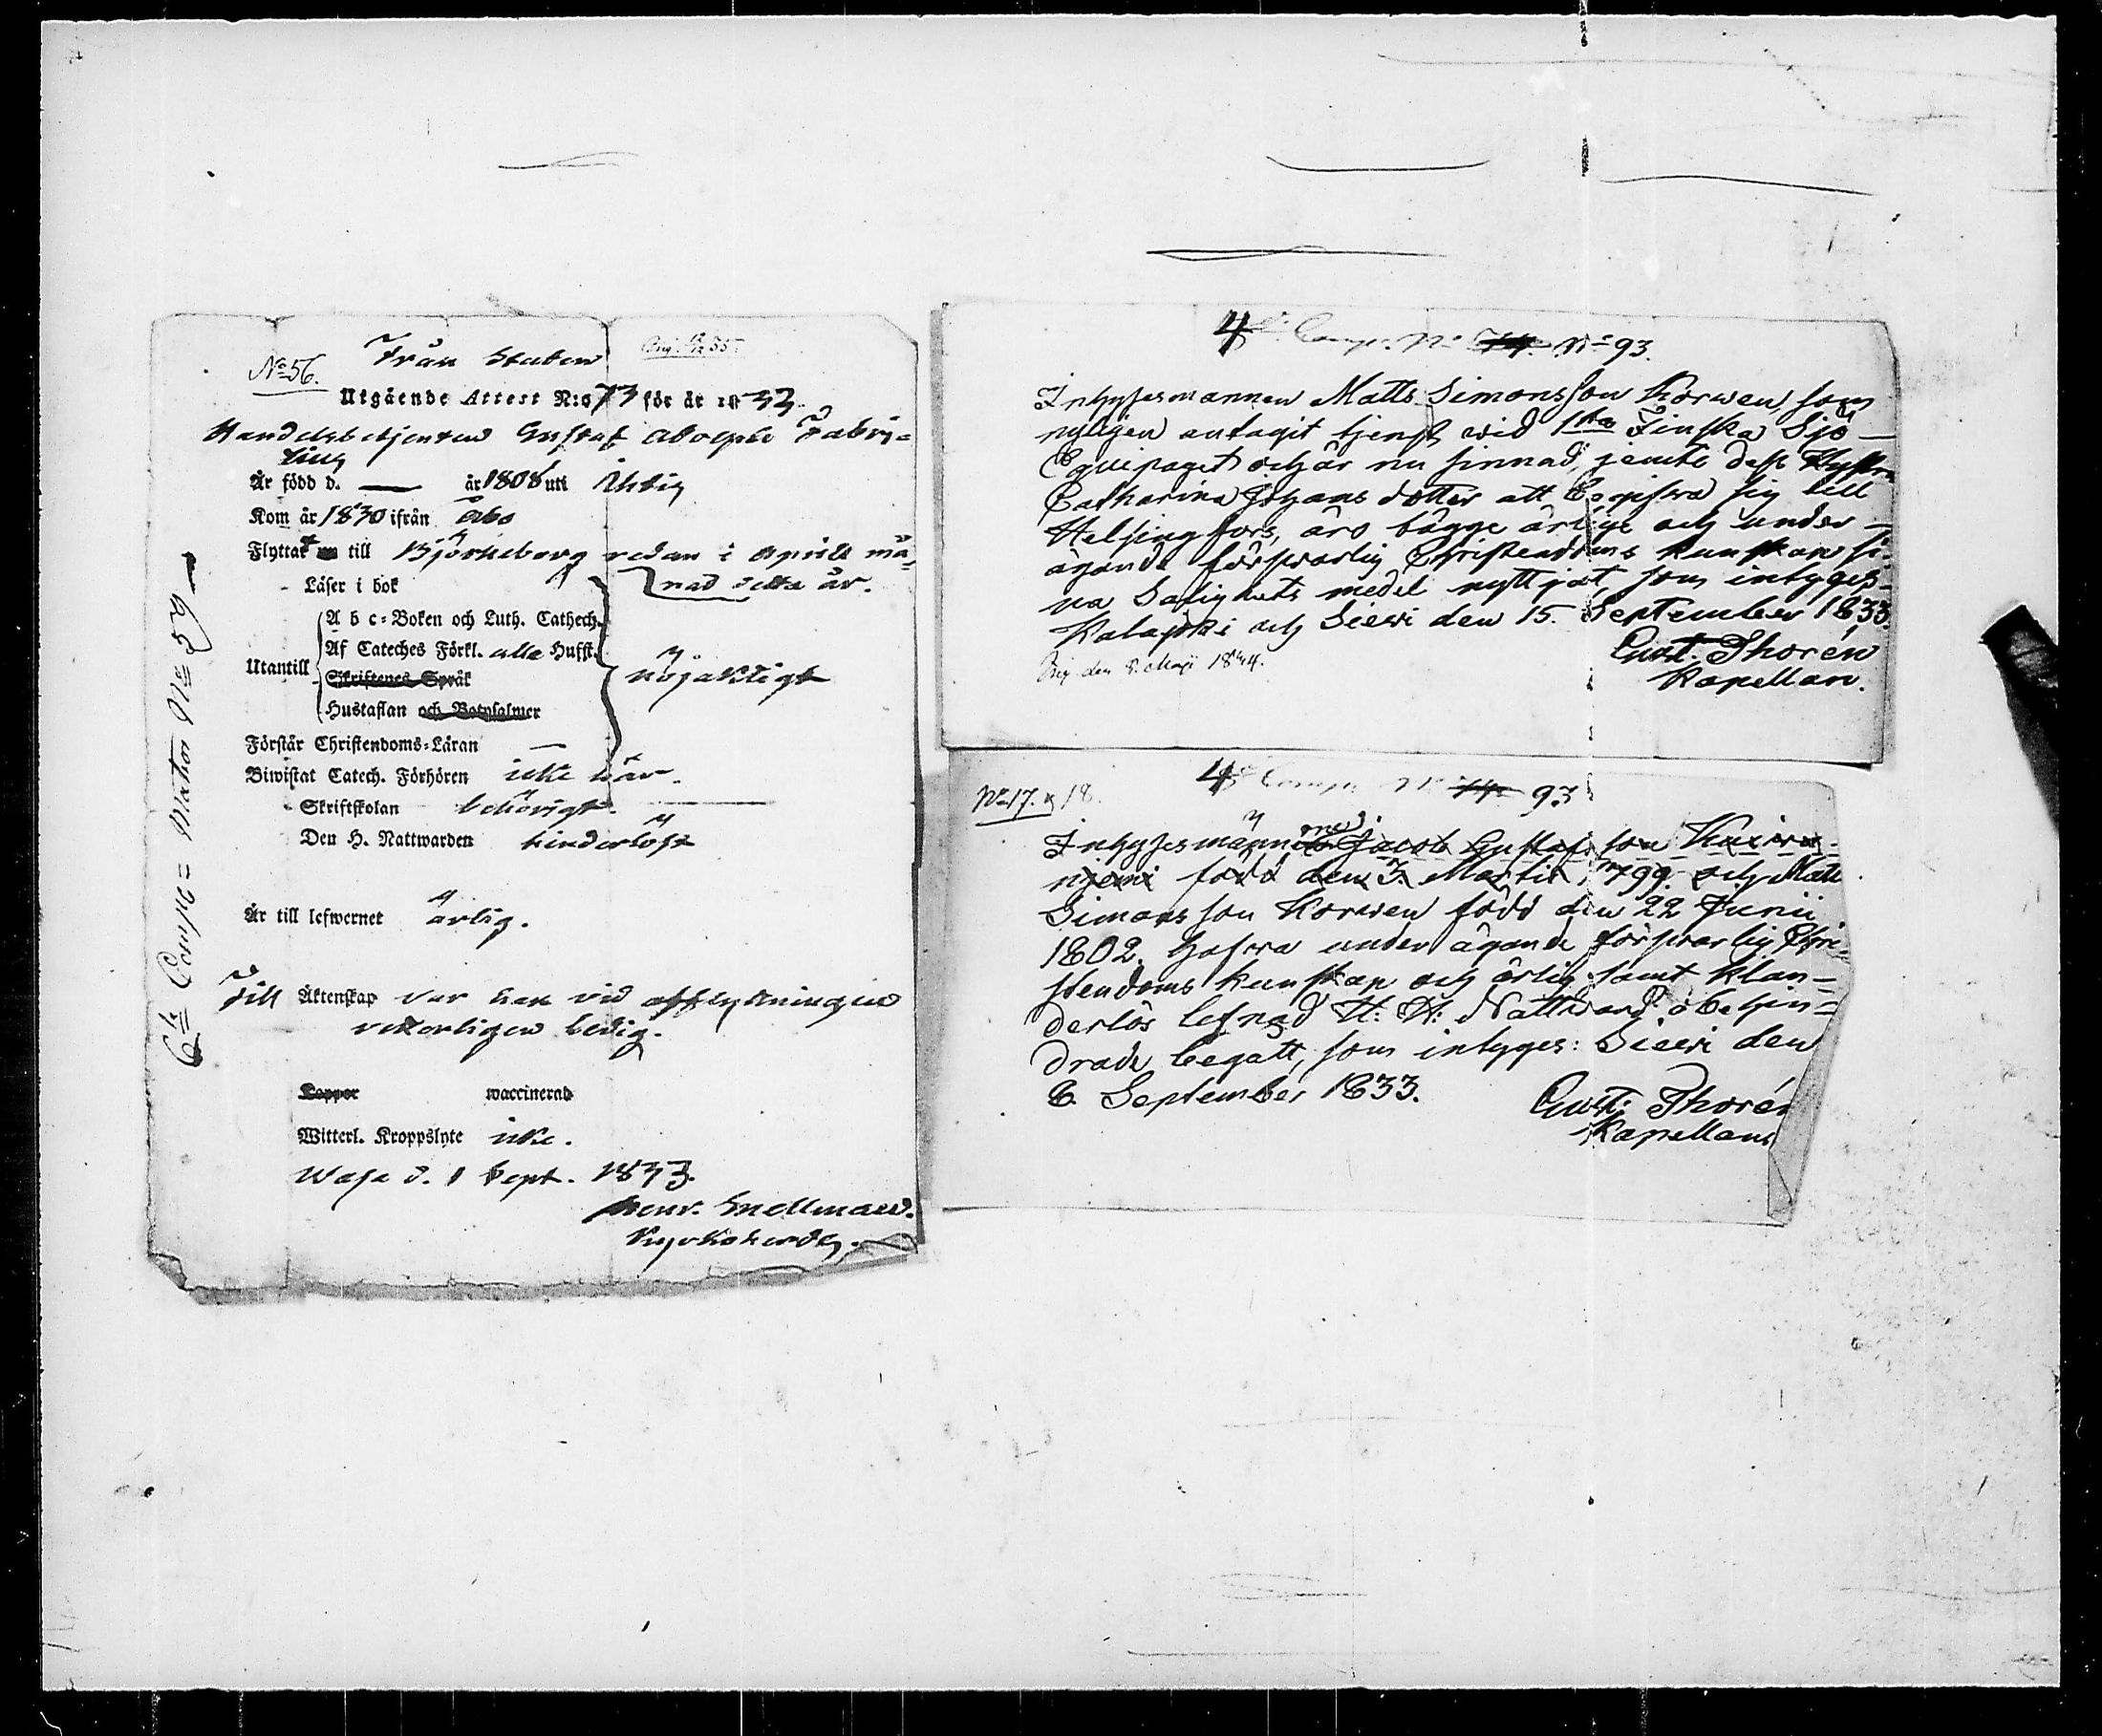 Från Staben
No 56.
Utgående Attest N:o 73 för år 1833
Handelsbetjenten Gustaf Adolph Fabri=
tius
Är född d. — år 1808 uti
Kom år 1830 ifrån Åbo
Flyttat till Björneborg redan i Aprill må=
nad detta år.
Läser i bok
A b c=Boken och Luth. Cathech.
Af Cateches Förkl. alla Hufst.
Utantill
Skriftenes Språk
nöjaktigt
Hustaflan och Botpsalmer
Förstår Christendoms=Läran —
Biwistat Catech. Förhören icke här.
Skriftskolan behörigt.
Den H. Nattwarden hinderlöst
Är till lefwernet ärlig.
Till Äktenskap var han vid afflyttningen
veterligen ledig.
Koppor waccinerad
Witterl. Kroppslyte icke.
Wasa d. 1 Sept. 1833.
Henr. Snellman.
Kyrkoherde.
6te Comp= Matros No 59
4de Comp. No 74 No 93.
Inhysesmannen Matts Simonsson Korwen, som
nyligen antagit tjenst wid 1sta Finska Sjö—
Equipaget och är nu sinnad, jemte dess Hustru
Catharina Johansdotter att begifwa sig till
Helsingfors, äro bägge ärlige och under—
ägande förswarlig Christendoms kunskap si=
na Salighets medel nyttjat, som intyges
Kalajoki och Siewi den 15. September 1833.
Gust. Thorén
Kapellan.
den 8. Maji 1844.
4de Comp. No 74 93
No 17. & 18.
Inhysesmännne med Jacob Gustafsson Kuiwa-
niemi född den 3. Martii 1799. och Matts
Simonsson Korwen född den 22 Junii
1802. hafwa under ägande förswarlig Chri=
stendoms kunskap och ärlig samt klan=
derlös lefnad H: H: Nattward obehin=
drade begått, som intyges: Siewi den
6. September 1833.
Gust: Thorén
Kapellan